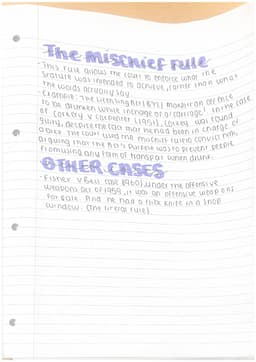 The Mischief Rule
- This rule allows the court to enforce what the
statute was intended to achieve, rather than what
the words actually say.
- Example: The Licensing Act 1872 made it an offence
to be drunken while in charge of a carriage. In the case
of Corkery v Carpenter (1951), Corkey was found
guilty, despite the fact that he had been in charge of
a bike. The court used the mischief rule to convict him,
arguing that the Act's purpose was to prevent people
from using any form of transport when drunk.
OTHER CASES
- Fisher v Bell case (1960), under the offensive
weapons act of 1959, it was an offensive weapons
for sale. And he had a flick knife in a shop
window. (The literal rule).